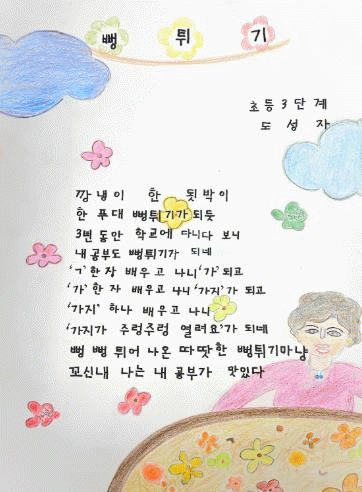 뻥튀기
초등3단계
도성자
깡냉이 한 됫박이
한 푸대 뻥튀기가 되듯
3번 동안 학교에 다니다 보니
내 공부도 뻥튀기가 되네
'ㄱ' 한 자 배우고 나니 '가' 되고
'가' 한 자 배우고 나니 '가지'가 되고
'가지' 하나 배우고 나니
'가지가 주렁주렁 열려요'가 되네
뻥 뻥 튀어 나온 따땃한 뻥튀기마냥
꼬신내 나는 내 공부가 맛있다